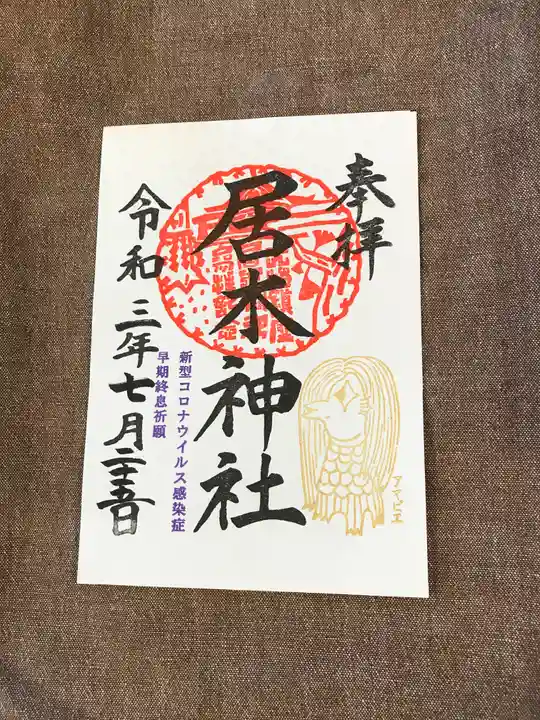 奉拝
アマビエ
居木神社
新型コロナウイルス感染症
早期終息祈願
令和三年七月二十五日